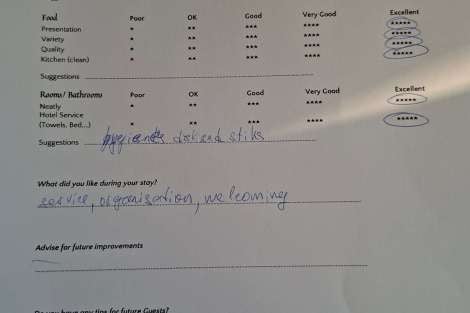 Food Poor OK Good Very Good Excellent
Presentation * ** *** **** *****
Variety * ** *** **** *****
Quality * ** *** **** *****
Kitchen (clean) * ** *** **** *****
Suggestions
Rooms/ Bathrooms Poor OK Good Very Good Excellent
Neatly * ** *** **** *****
Hotel Service
(Towels, Bed...) * ** *** **** *****
Suggestions
What did you like during your stay?
service, organisation, welcoming
Advise for future improvements
Do you have any tips for future Guests?